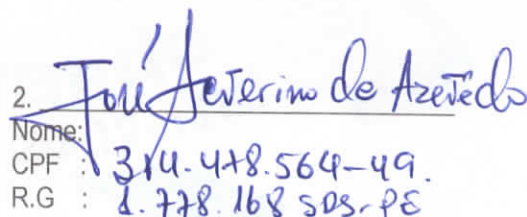 2. José Severino de Azevêdo
Nome:
CPF : 314.478.564-49.
R.G : 1.778.168 SDS-PE